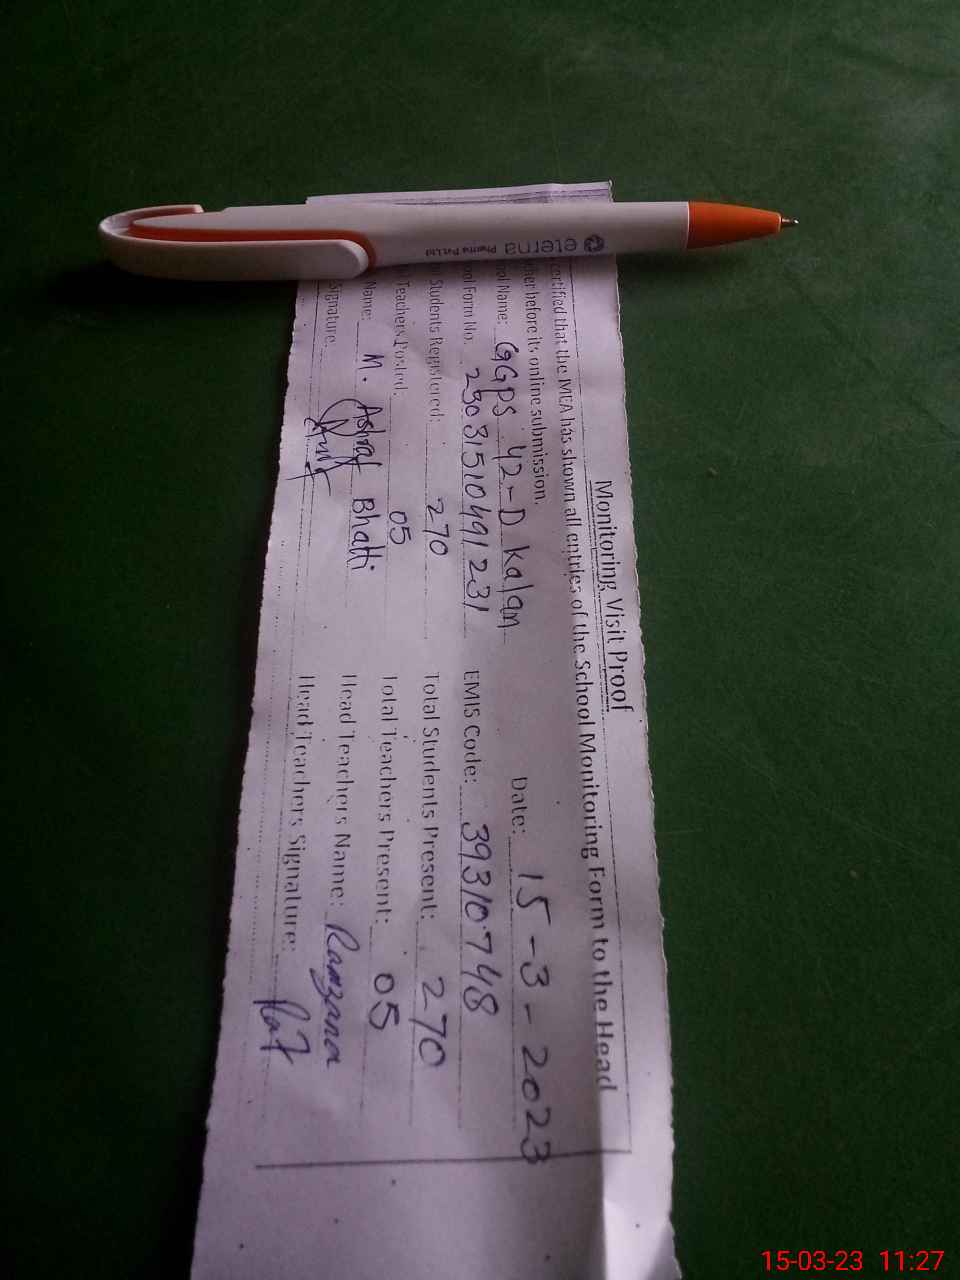 Monitoring Visit Proof
certified that the MEA has shown all entries of the School Monitoring Form to the Head
before its online submission.
Date: 15-3-2023
Name: GGPS 42-D Kalan
Form No. 23031510491231 EMIS Code: 39310748
Students Registered: 270 Total Students Present: 270
Teachers Posted: 05 Total Teachers Present: 05
Name: M. Ashraf Bhatti Head Teachers Name: Ramzana
Signature: Head Teachers Signature:
eterna
Pharma Pvt Ltd
15-03-23 11:27